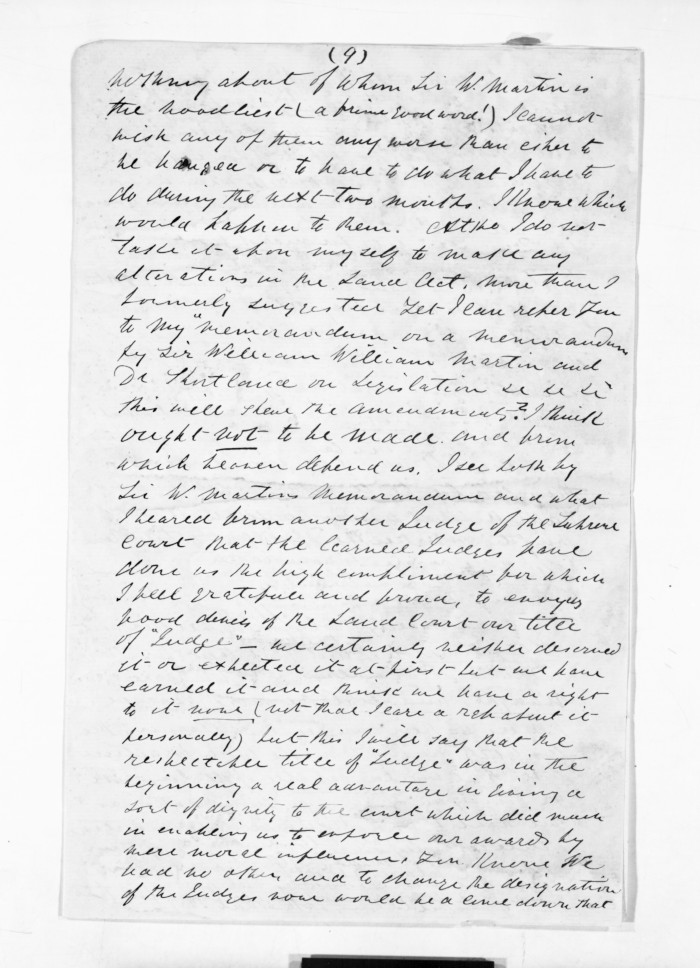 (9)
nothing about of whom Sir W. Martin is
the noodliest (a prime good word!) I cannot
wish any of them any worse than eiher to
be hanged or to have to do what I have to
do during the next two months. I know which
would happen to them. Altho I do not
take it upon myself to make any
alterations in the Land Act, more than I
formerly suggested yet I can refer you
to my "memorandum on a memorandum
by Sir William William Martin and
Dr Shortland on Legislation &c &c &c
this will shew the amendments I think
ought not to be made. and from
which heaven defend us. I see both by
Sir W. Martins Memorandum and what
I heared from another Judge of the Supreme
Court that the learned Judges have
done us the high compliment for which
I feel gratefull and proud, to envy us
poor devils of the Land Court our title
of "Judge" – we certainly neither deserved
it or expected it at first but we have
earned it and think we have a right
to it now (not that I care a rap about it
personaly) but this I will say that the
respectable title of "Judge" was in the
beginning a real advantage in giving a
sort of dignity to the court which did much
in enabling us to enforce our awards by
mere moral influence, You Know We
had no other, and to change the designation
of the Judges now would be a come down that